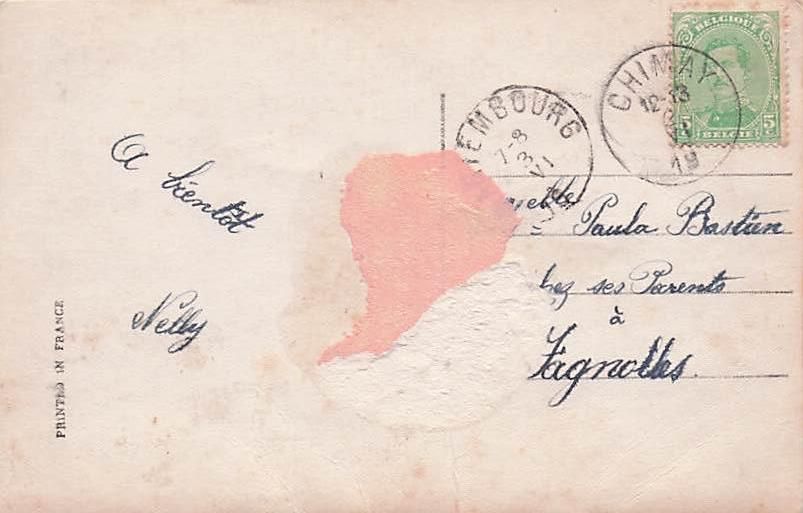 BELGIQUE
5 5
BELGIE
CHIMAY
12-13
19
EMBOURG
7-8
3
VI
A bientôt
Nelly
Paula Bastien
hez ses Parents
à
Fagnolles.
PRINTED IN FRANCE